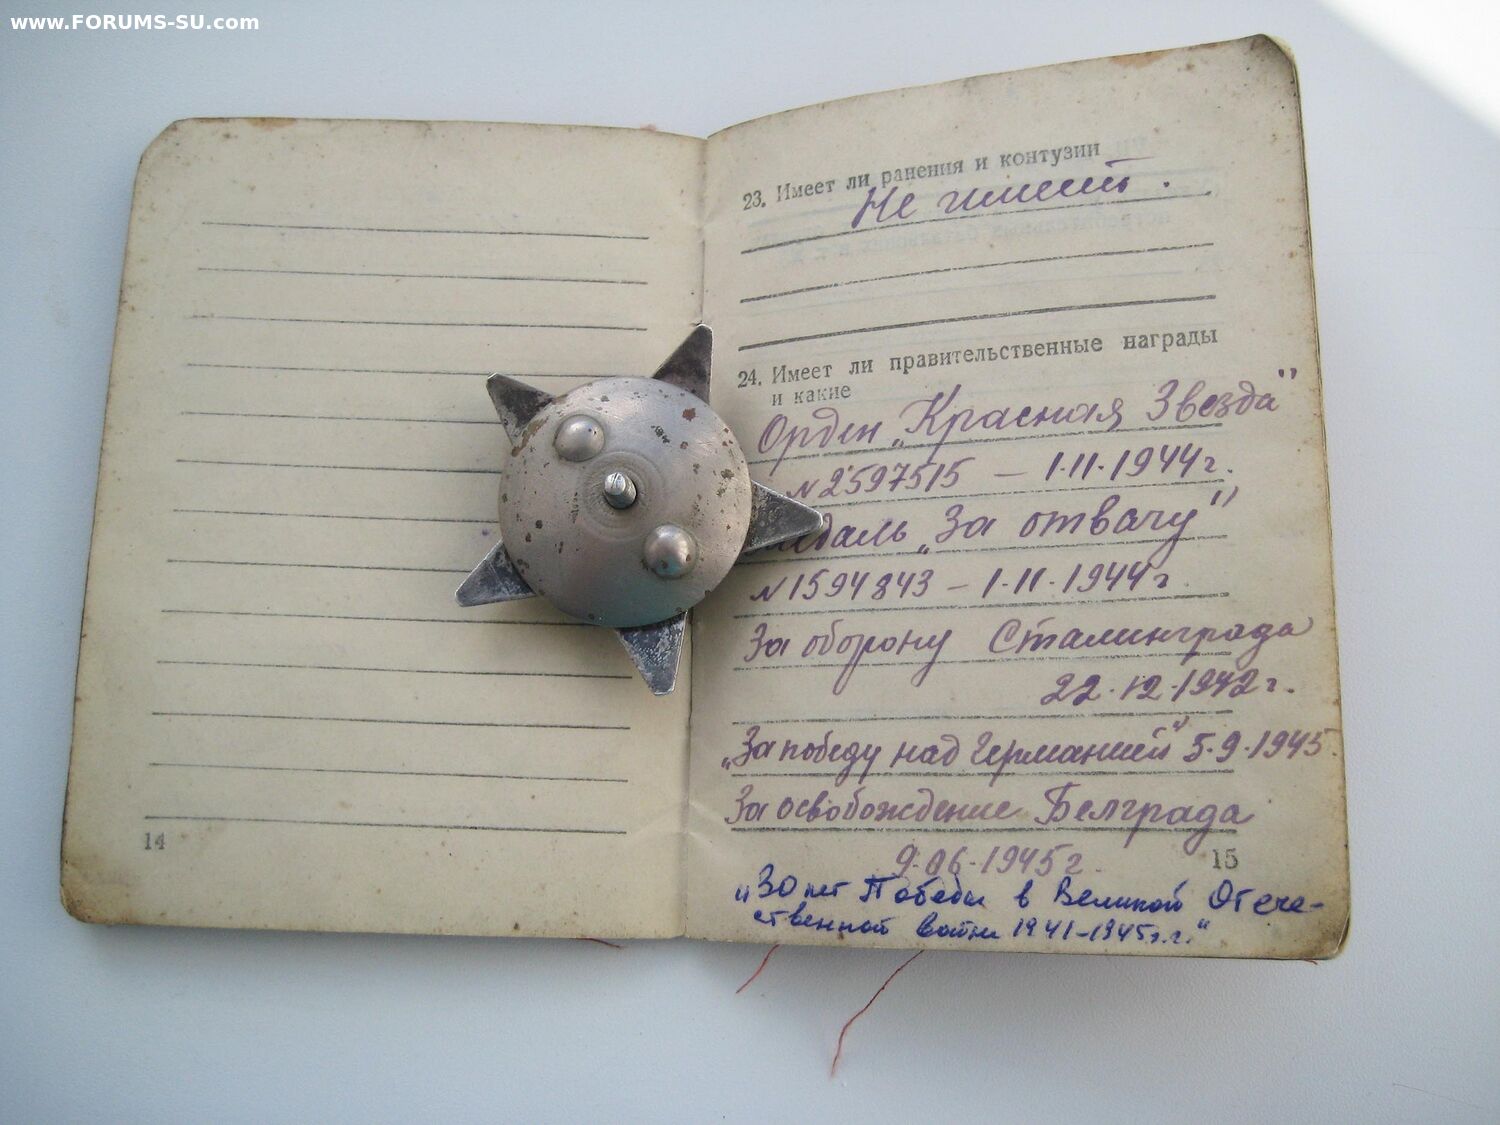 www.FORUMS-SU.com
23. Имеет ли ранения и контузии
Не имеет.
24. Имеет ли правительственные награды
и какие
Орден „Красная Звезда"
№2597515 — 1.11.1944г.
медаль „За отвагу"
№1594843 — 1.11.1944г
За оборону Сталинграда
22.12.1942г.
„За победу над Германией" 5.9.1945
За освобождение Белграда
9.06.1945г.
15
„30 лет Победы в Великой Отече-
ственной войне 1941-1945г.г."
14